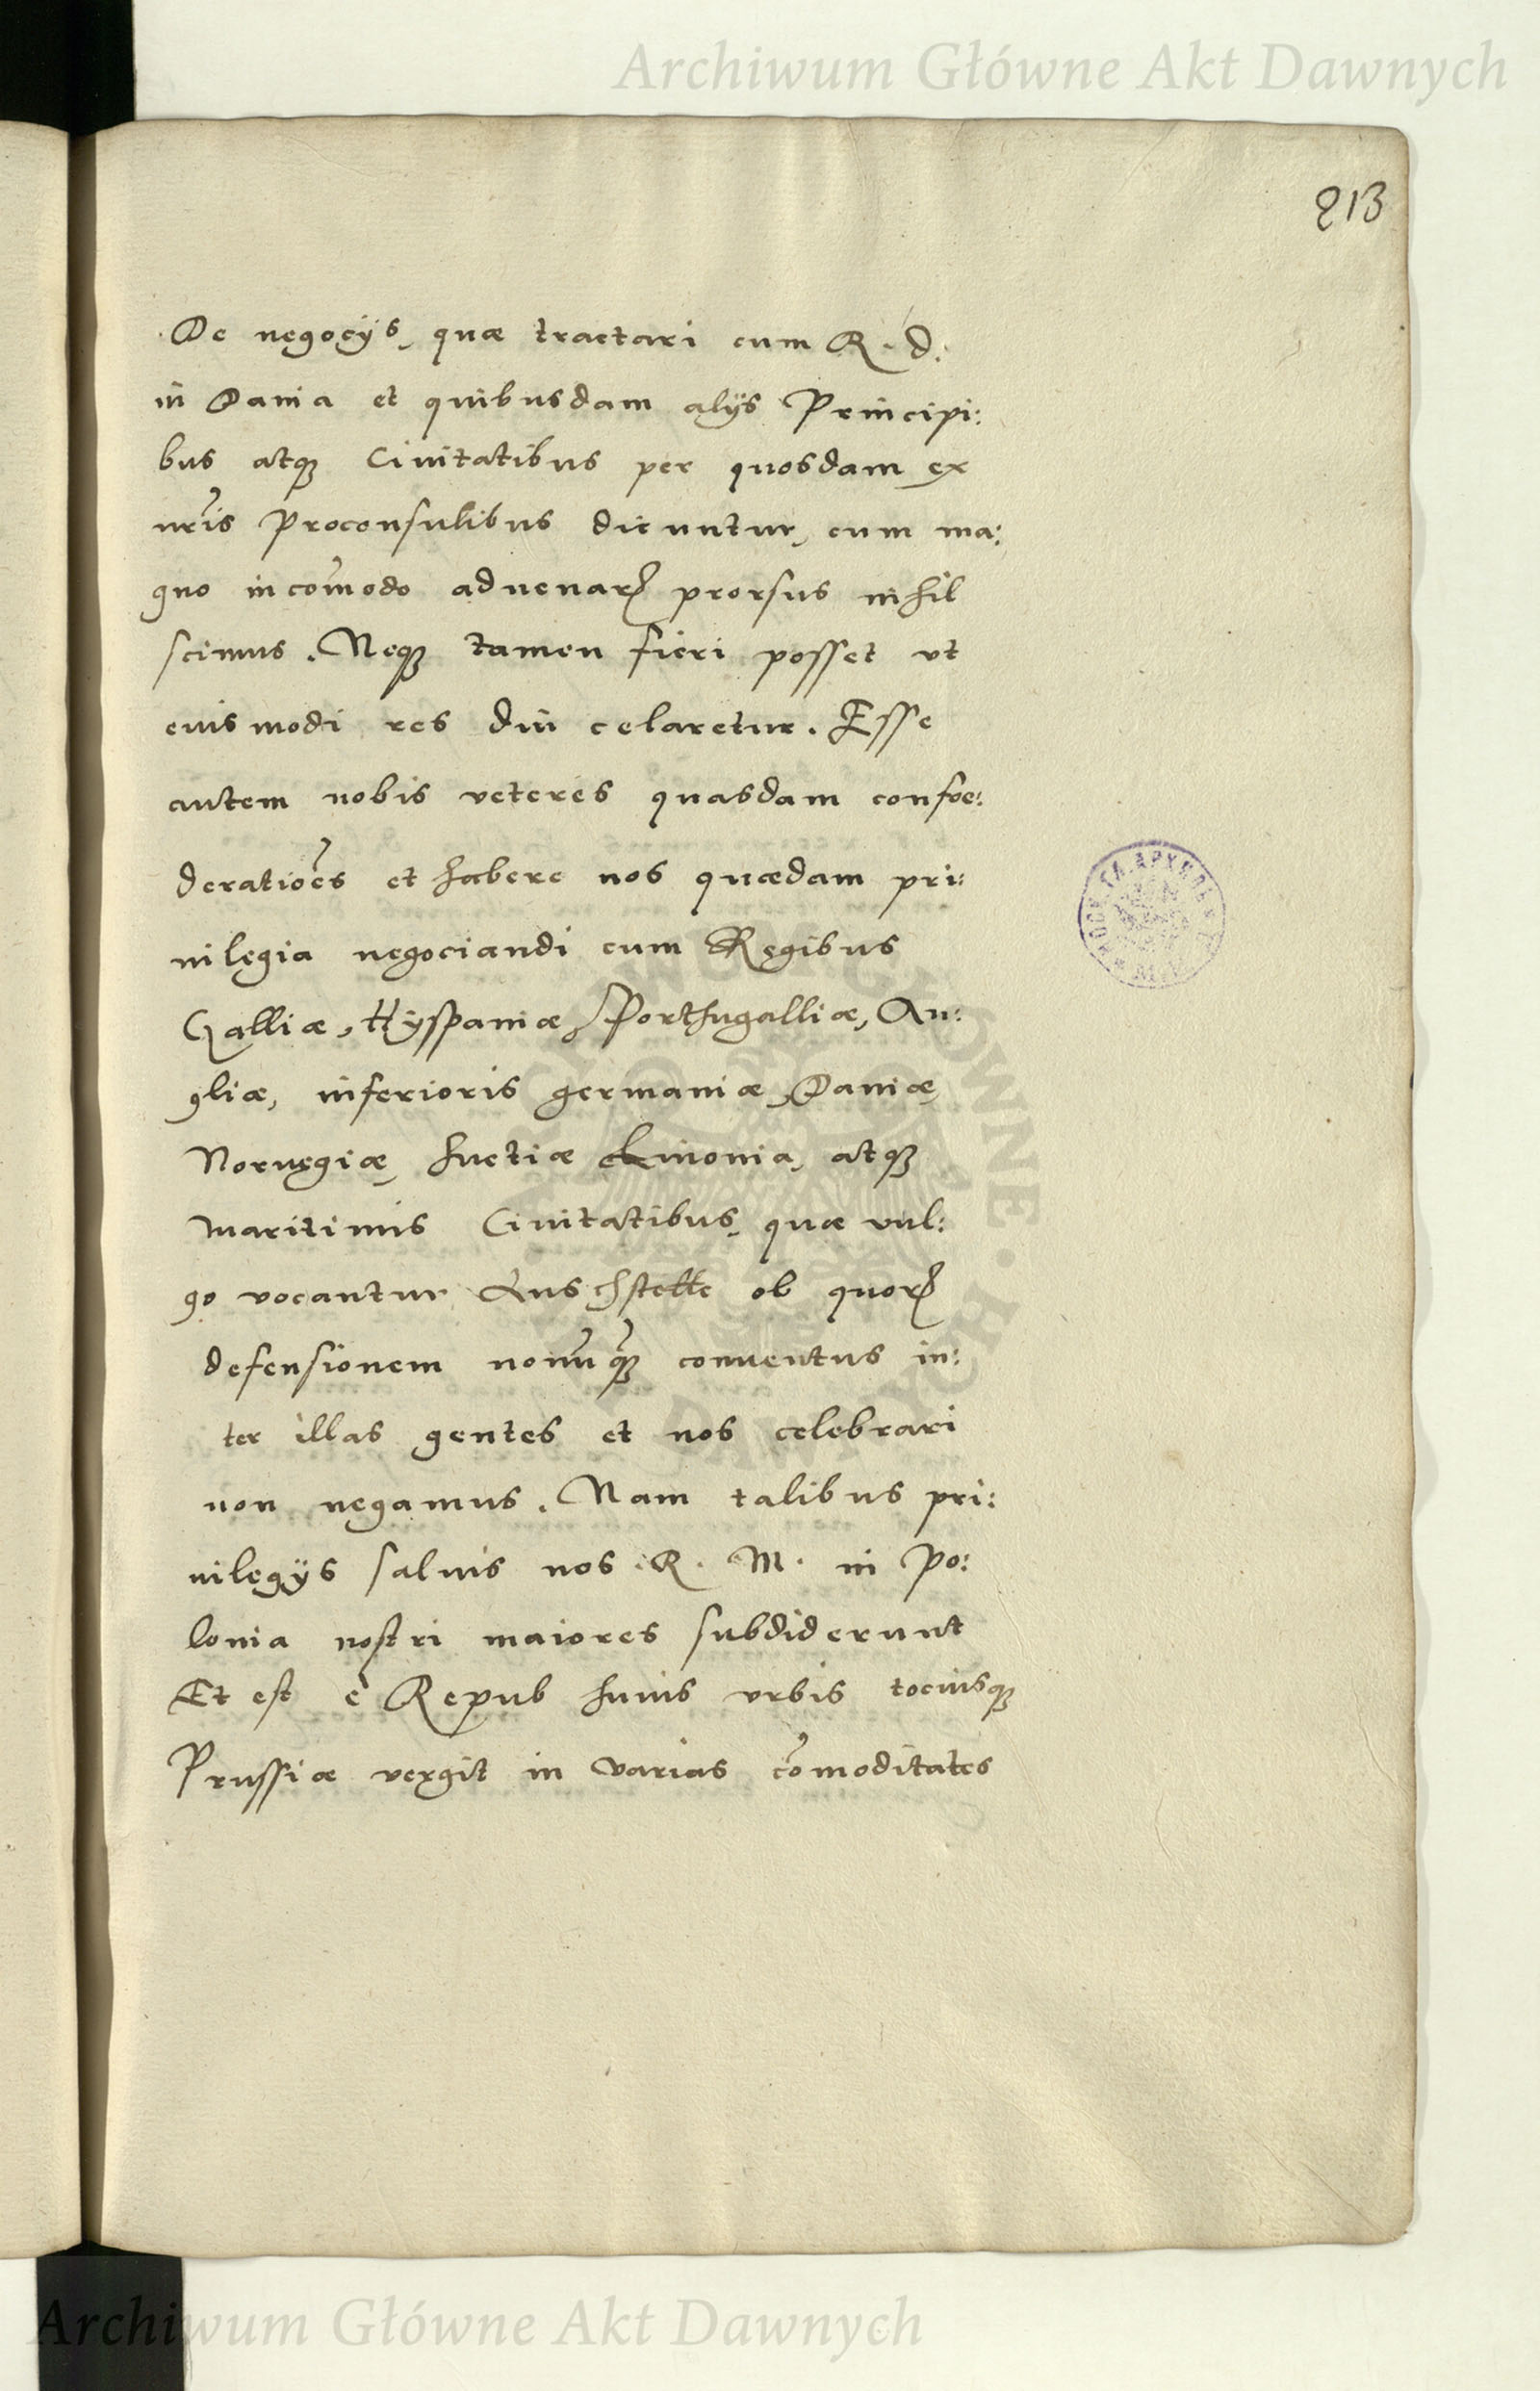 Archiwum Główne Akt Dawnych
213
De negocÿs, quæ tractari cum R. d:
in Dania et quibusdam alÿs Principi:
bus atqꝫ Ciuitatibus per quosdam ex
nr̃is Proconsulibus dicuntur, cum ma:
gno incom̃odo aduenarꝝ prorsus nihil
scimus. Neqꝫ tamen fieri posset vt
euismodi res diu celaretur. Esse
autem nobis veteres quasdam confœ:
deratio͂es et habere nos quædam pri:
uilegia negociandi cum Regibus
Galliæ, Hyspaniæ, Porthugalliæ, An:
gliæ, inferioris germaniæ, Daniæ,
Noruegiæ, huetiæ Liuonia, atqꝫ
maritimis Ciuitatibus, quæ vul:
go vocantur ob quorꝝ
defensionem nonnũqꝫ conuentus in:
ter illas gentes et nos celebrari
non negamus. Nam talibus pri:
uilegÿs saluis nos R. M. in Po:
lonia nostri maiores subdiderunt
Et est è Repub huius vrbis tociusqꝫ
Prussiæ vergit in varias com̃oditates
Archiwum Główne Akt Dawnych